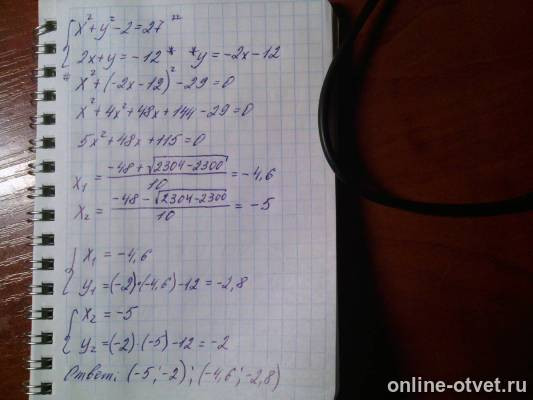 x² + y² - 2 = 27 **
2x + y = -12 * *y = -2x - 12
* x² + (-2x - 12)² - 29 = 0
x² + 4x² + 48x + 144 - 29 = 0
5x² + 48x + 115 = 0
x₁ = (-48 + √(2304 - 2300))/10 = -4,6
x₂ = (-48 - √(2304 - 2300))/10 = -5
x₁ = -4,6
y₁ = (-2)·(-4,6) - 12 = -2,8
x₂ = -5
y₂ = (-2)·(-5) - 12 = -2
Ответ: (-5; -2); (-4,6; -2,8)
online-otvet.ru